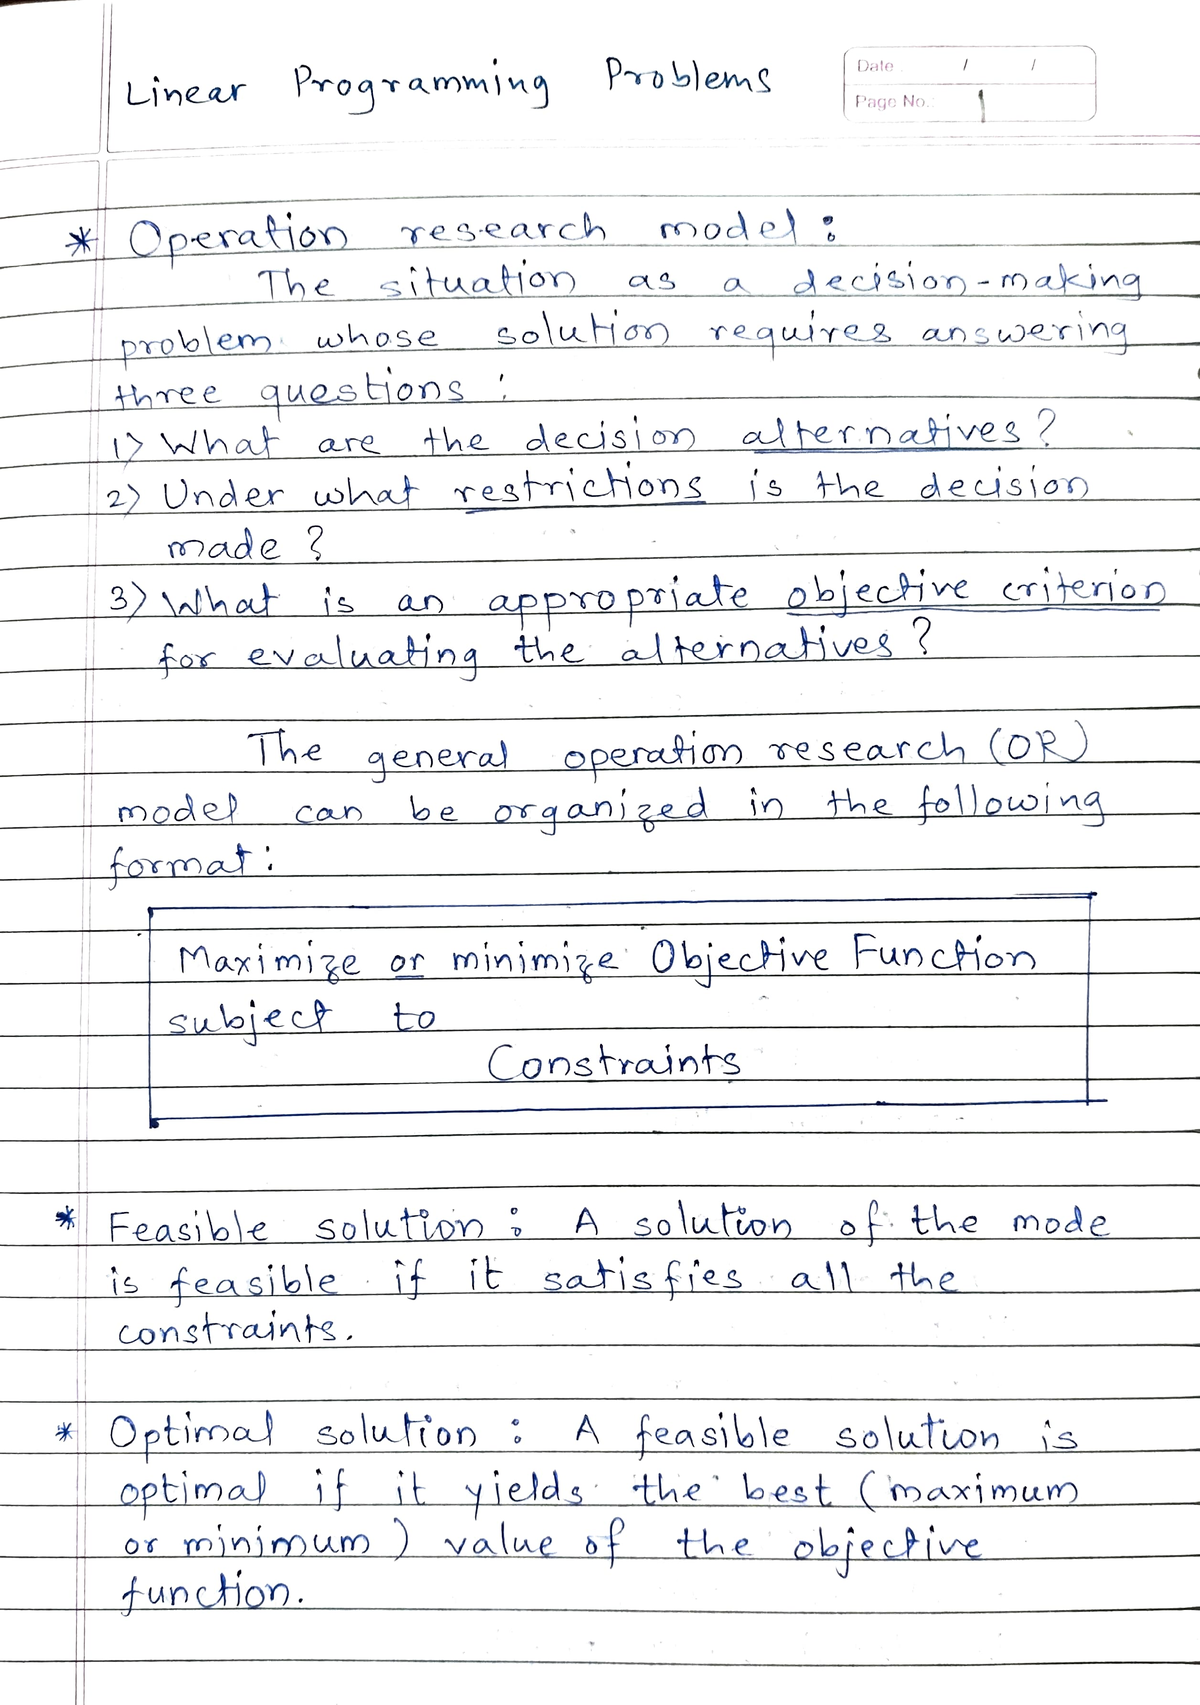 Linear Programming Problems
Date / /
Page No.: 1
* Operation research model :
The situation as a decision-making
problem whose solution requires answering
three questions :
1) What are the decision alternatives ?
2) Under what restrictions is the decision
made ?
3) What is an appropriate objective criterion
for evaluating the alternatives ?
The general operation research (OR)
model can be organized in the following
format :
Maximize or minimize Objective Function
subject to
Constraints
* Feasible solution : A solution of the mode
is feasible if it satisfies all the
constraints.
* Optimal solution : A feasible solution is
optimal if it yields the best (maximum
or minimum) value of the objective
function.